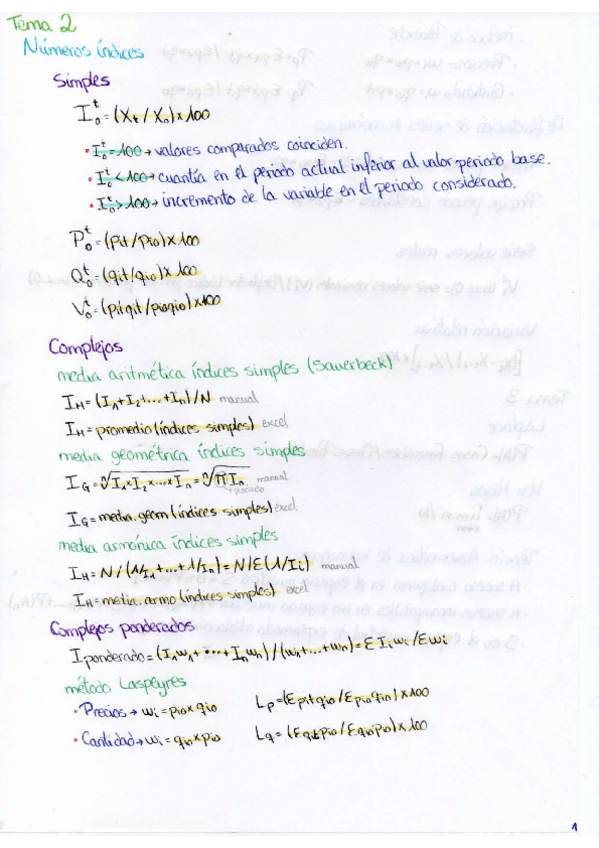 Tema 2
Números índices
Simples
I₀ᵗ = (Xt / X₀) x 100
• I₀ᵗ = 100 → valores comparados coinciden.
• I₀ᵗ < 100 → cuantía en el periodo actual inferior al valor periodo base.
• I₀ᵗ > 100 → incremento de la variable en el periodo considerado.
P₀ᵗ = (pit / pio) x 100
Q₀ᵗ = (qit / qio) x 100
V₀ᵗ = (pit qit / pio qio) x 100
Complejos
media aritmética índices simples (Sauerbeck)
I_M = (I₁ + I₂ + ... + Iₙ) / N manual
I_M = promedio (índices simples) excel
media geométrica índices simples
I_G = ⁿ√(I₁ x I₂ x ... x Iₙ) = ⁿ√(∏ Iₙ) manual
I_G = media.geom (índices simples) excel
media armónica índices simples
I_H = N / (1/I₁ + ... + 1/Iₙ) = N / Σ(1/Ii) manual
I_H = media.armo (índices simples) excel
Complejos ponderados
I ponderado = (I₁w₁ + ... + Iₙwₙ) / (w₁ + ... + wₙ) = Σ Iiwi / Σwi
método Laspeyres
• Precios → wi = pio x qio Lp = (Σ pit qio / Σ pio qio) x 100
• Cantidad → wi = qio x pio Lq = (Σ qit pio / Σ qio pio) x 100
1